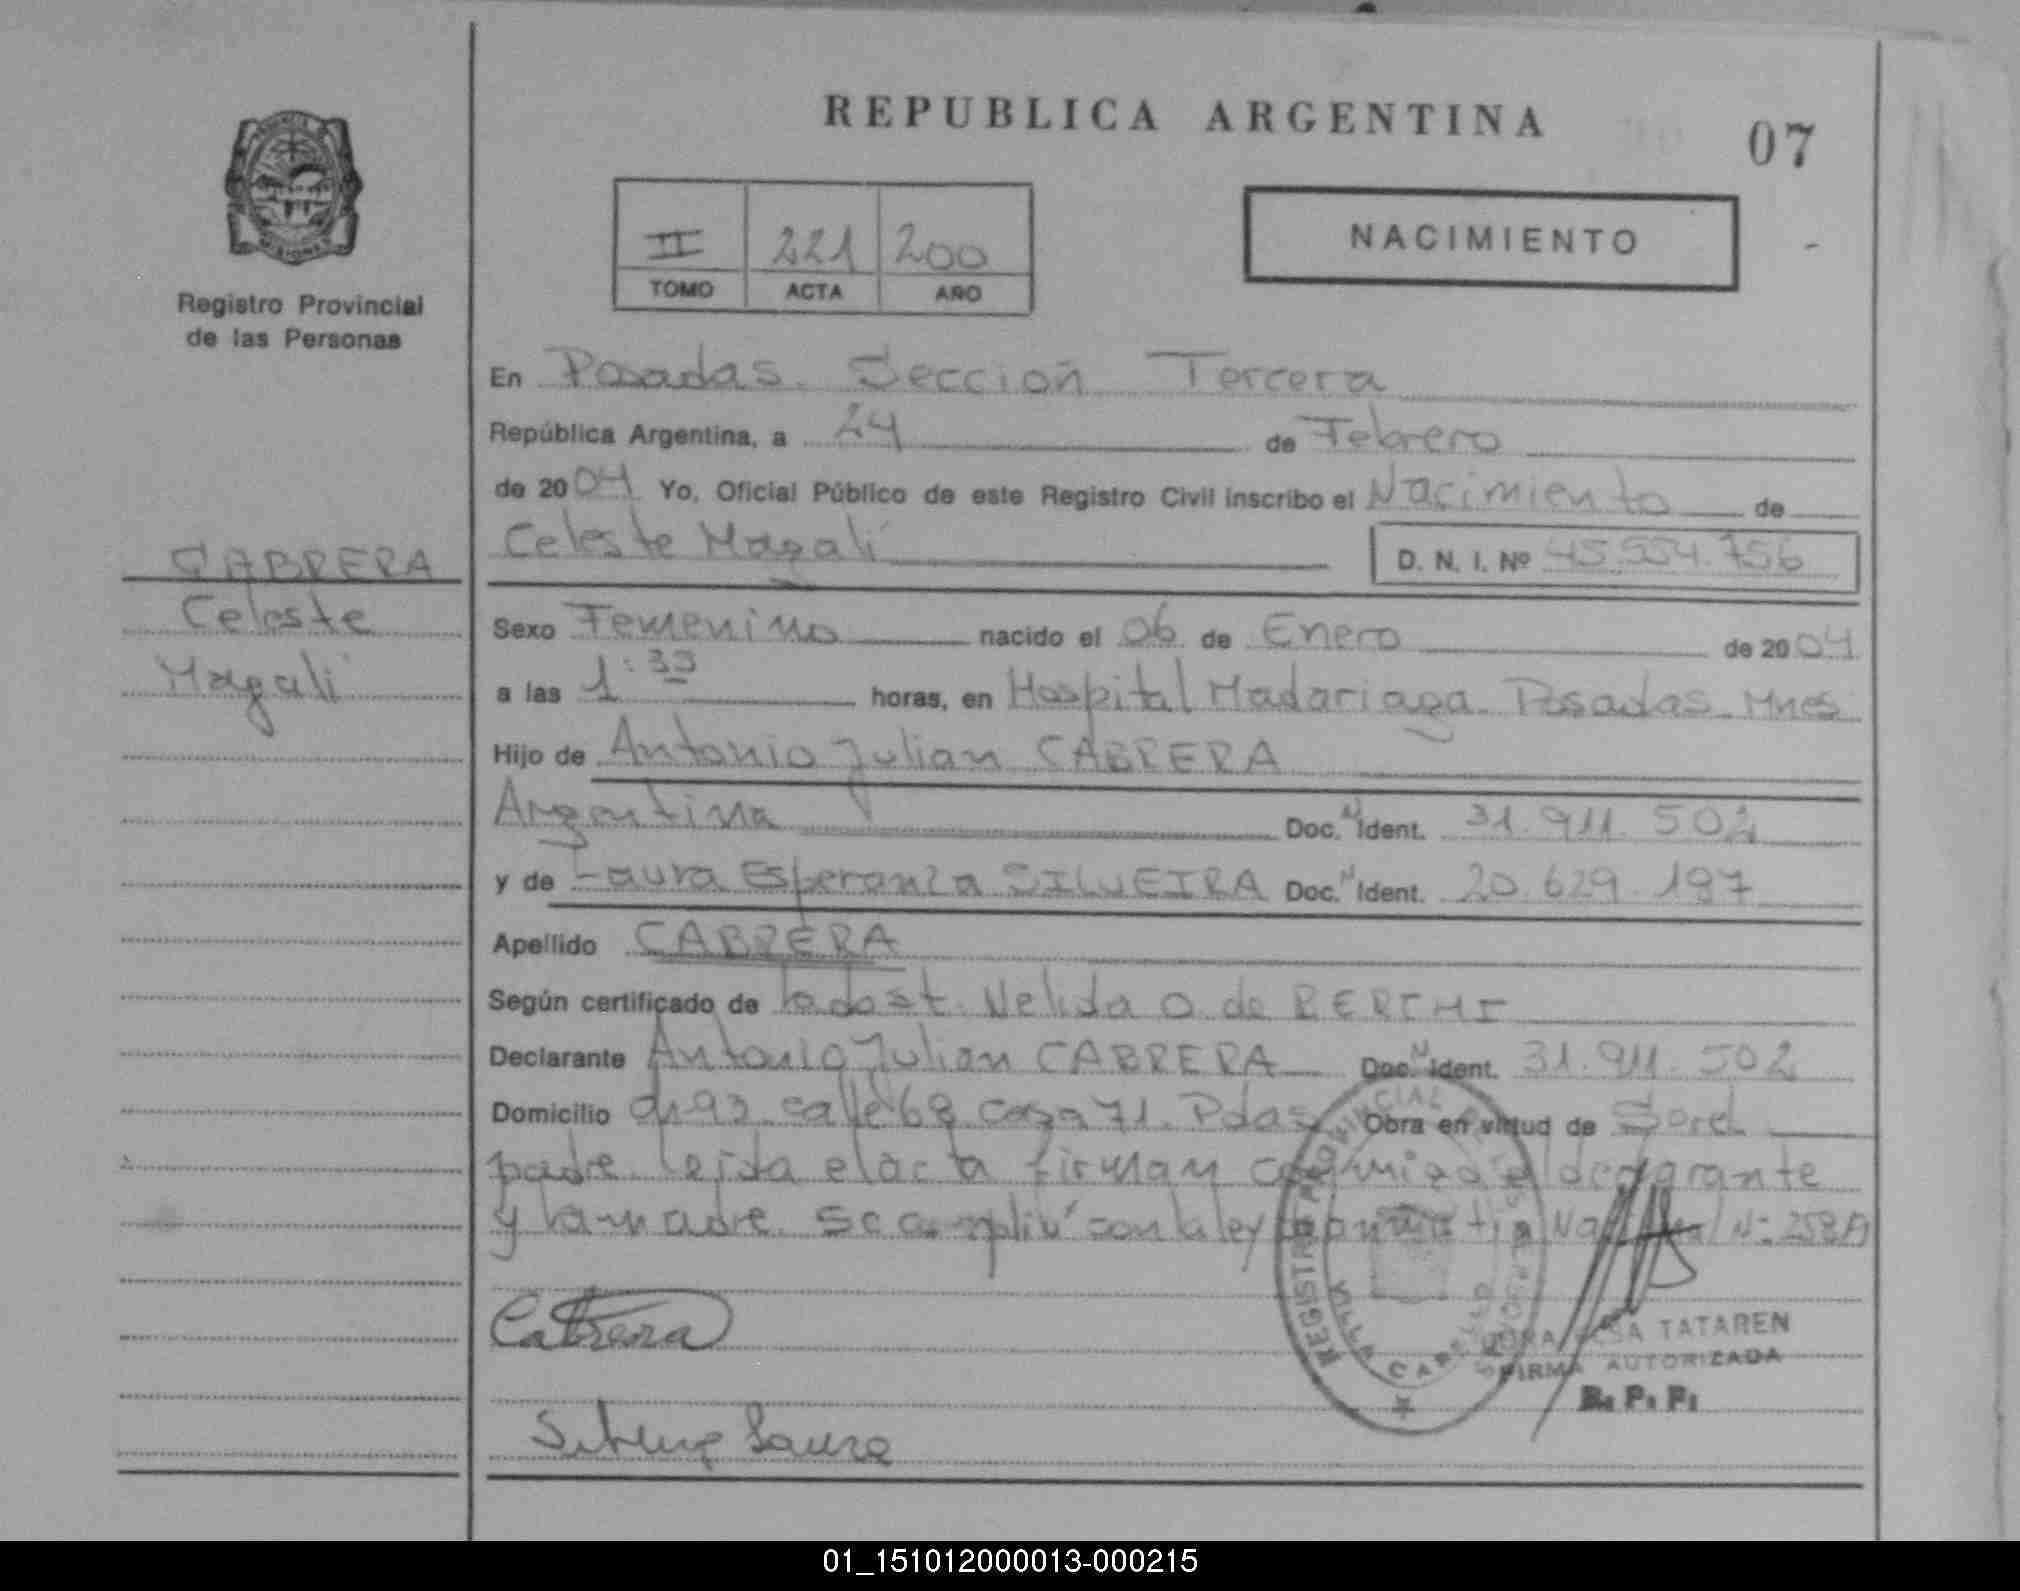 REPUBLICA ARGENTINA
07
II 221 200
TOMO ACTA AÑO
NACIMIENTO
Registro Provincial
de las Personas
En Posadas. Sección Tercera
República Argentina, a 24 de Febrero
de 2004 Yo, Oficial Público de este Registro Civil inscribo el Nacimiento de
CABRERA
Celeste
Magalí
Celeste Magalí D. N. I. Nº 45.554.756
Sexo Femenino nacido el 06 de Enero de 2004
a las 1:35 horas, en Hospital Madariaga. Posadas. Mnes
Hijo de Antonio Julian CABRERA
Argentina Doc. N Ident. 31.911.502
y de Laura Esperanza SILVEIRA Doc. N Ident. 20.629.197
Apellido CABRERA
Según certificado de Nelida O. de
Declarante Antonio Julian CABRERA Doc. N Ident. 31.911.502
Domicilio calle 68 casa 71. Pdas Obra en virtud de
padre. leida el acta firman conmigo el declarante
y la madre. se cumplió con la ley Nº
Cabrera
TATAREN
FIRMA AUTORIZADA
R. P. P.
Silveira Laura
REGISTRO PROVINCIAL
VILLA CABELLO
01_151012000013-000215